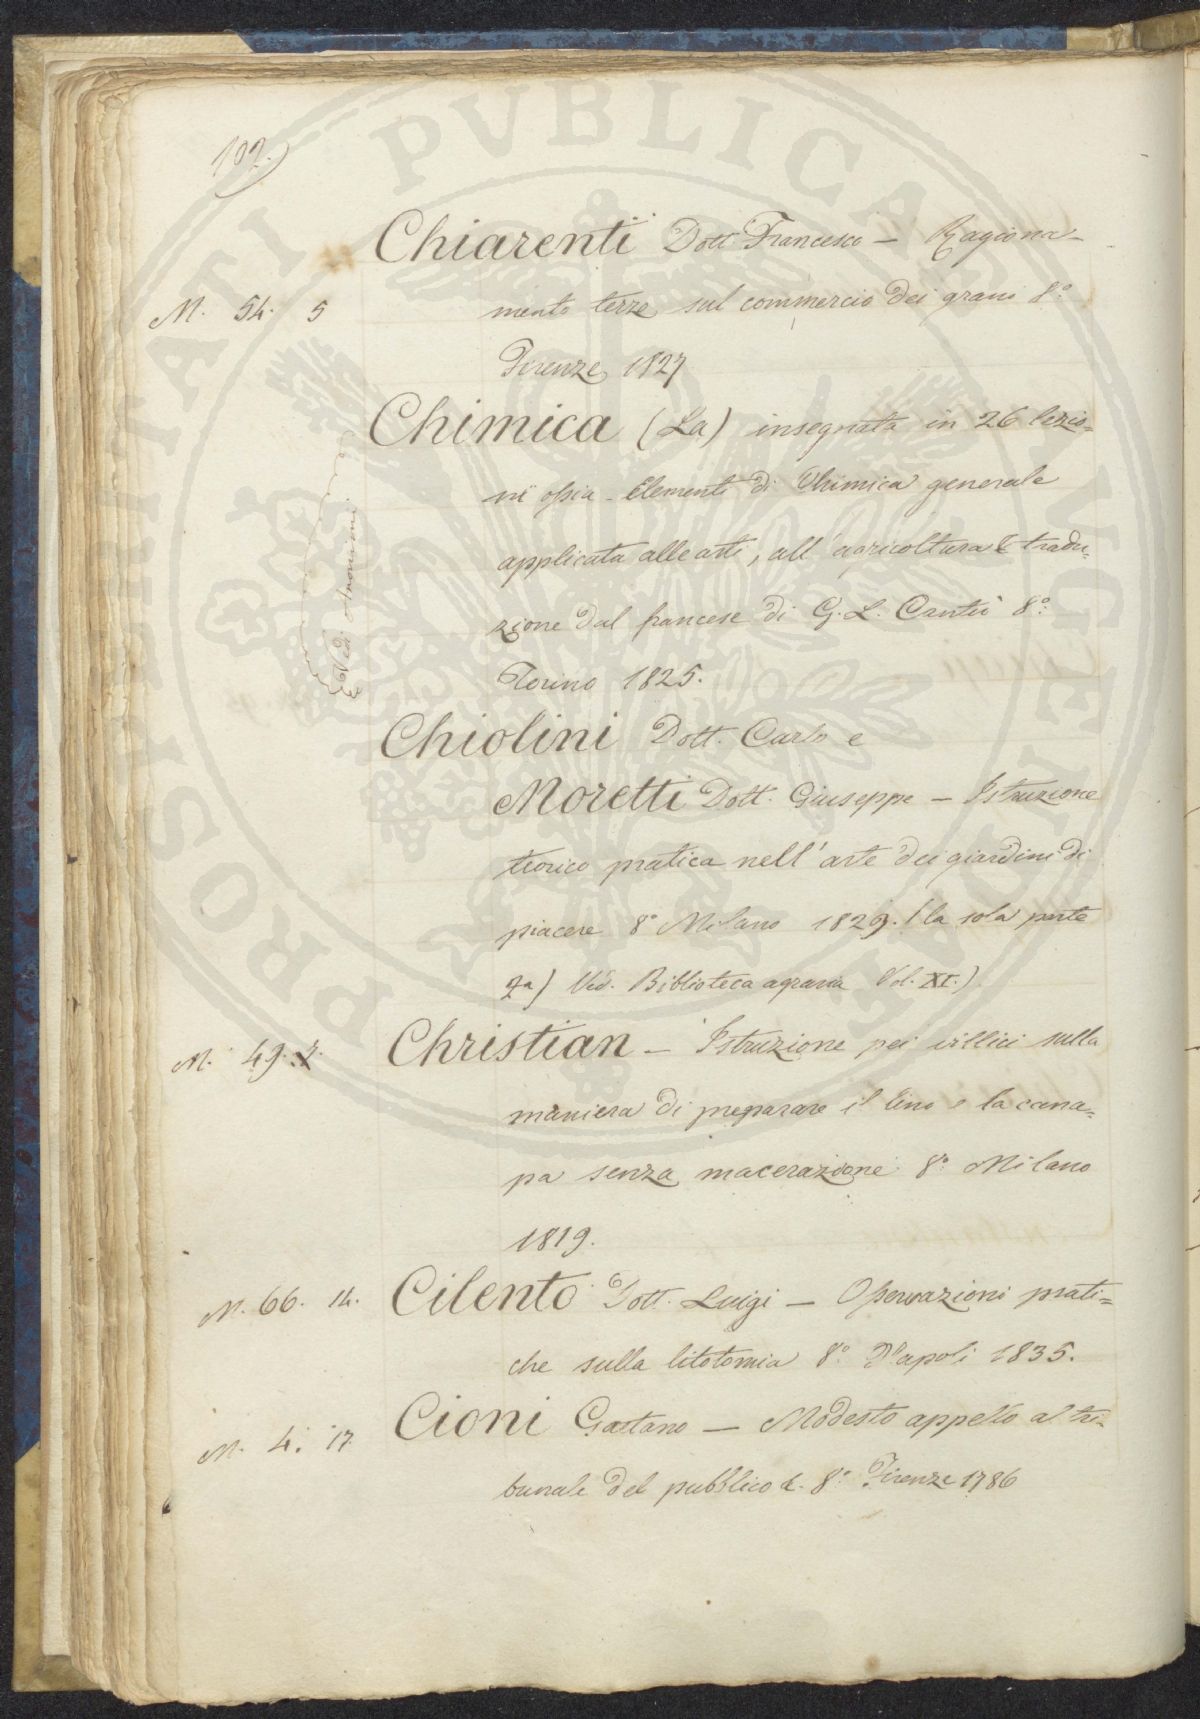 102.
Chiarenti Dott. Francesco — Ragiona-
M. 54. 5 mento terzo sul commercio dei grani 8.°
Firenze 1827
Chimica (La) insegnata in 26 lezio=
ni ossia Elementi di Chimica generale
applicata alle arti, all'agricoltura & tradu=
zione dal francese di G. L. Cantù 8.°
Torino 1825.
Vedi Anonimi
Chiolini Dott. Carlo e
Moretti Dott. Giuseppe — Istruzione
teorico pratica nell'arte dei giardini di
piacere 8.° Milano 1829. (la sola parte
2a) Ved. Biblioteca agraria Vol. XI.)
M. 49. 2. Christian — Istruzione pei villici sulla
maniera di preparare il lino e la cana=
pa senza macerazione 8.° Milano
1819.
M. 66. 14. Cilento Dott. Luigi — Osservazioni prati=
che sulla litotomia 8.° Napoli 1835.
M. 4. 17. Cioni Gaetano — Modesto appello al tri-
bunale del pubblico &. 8.° Firenze 1786
POS PVBLICAE